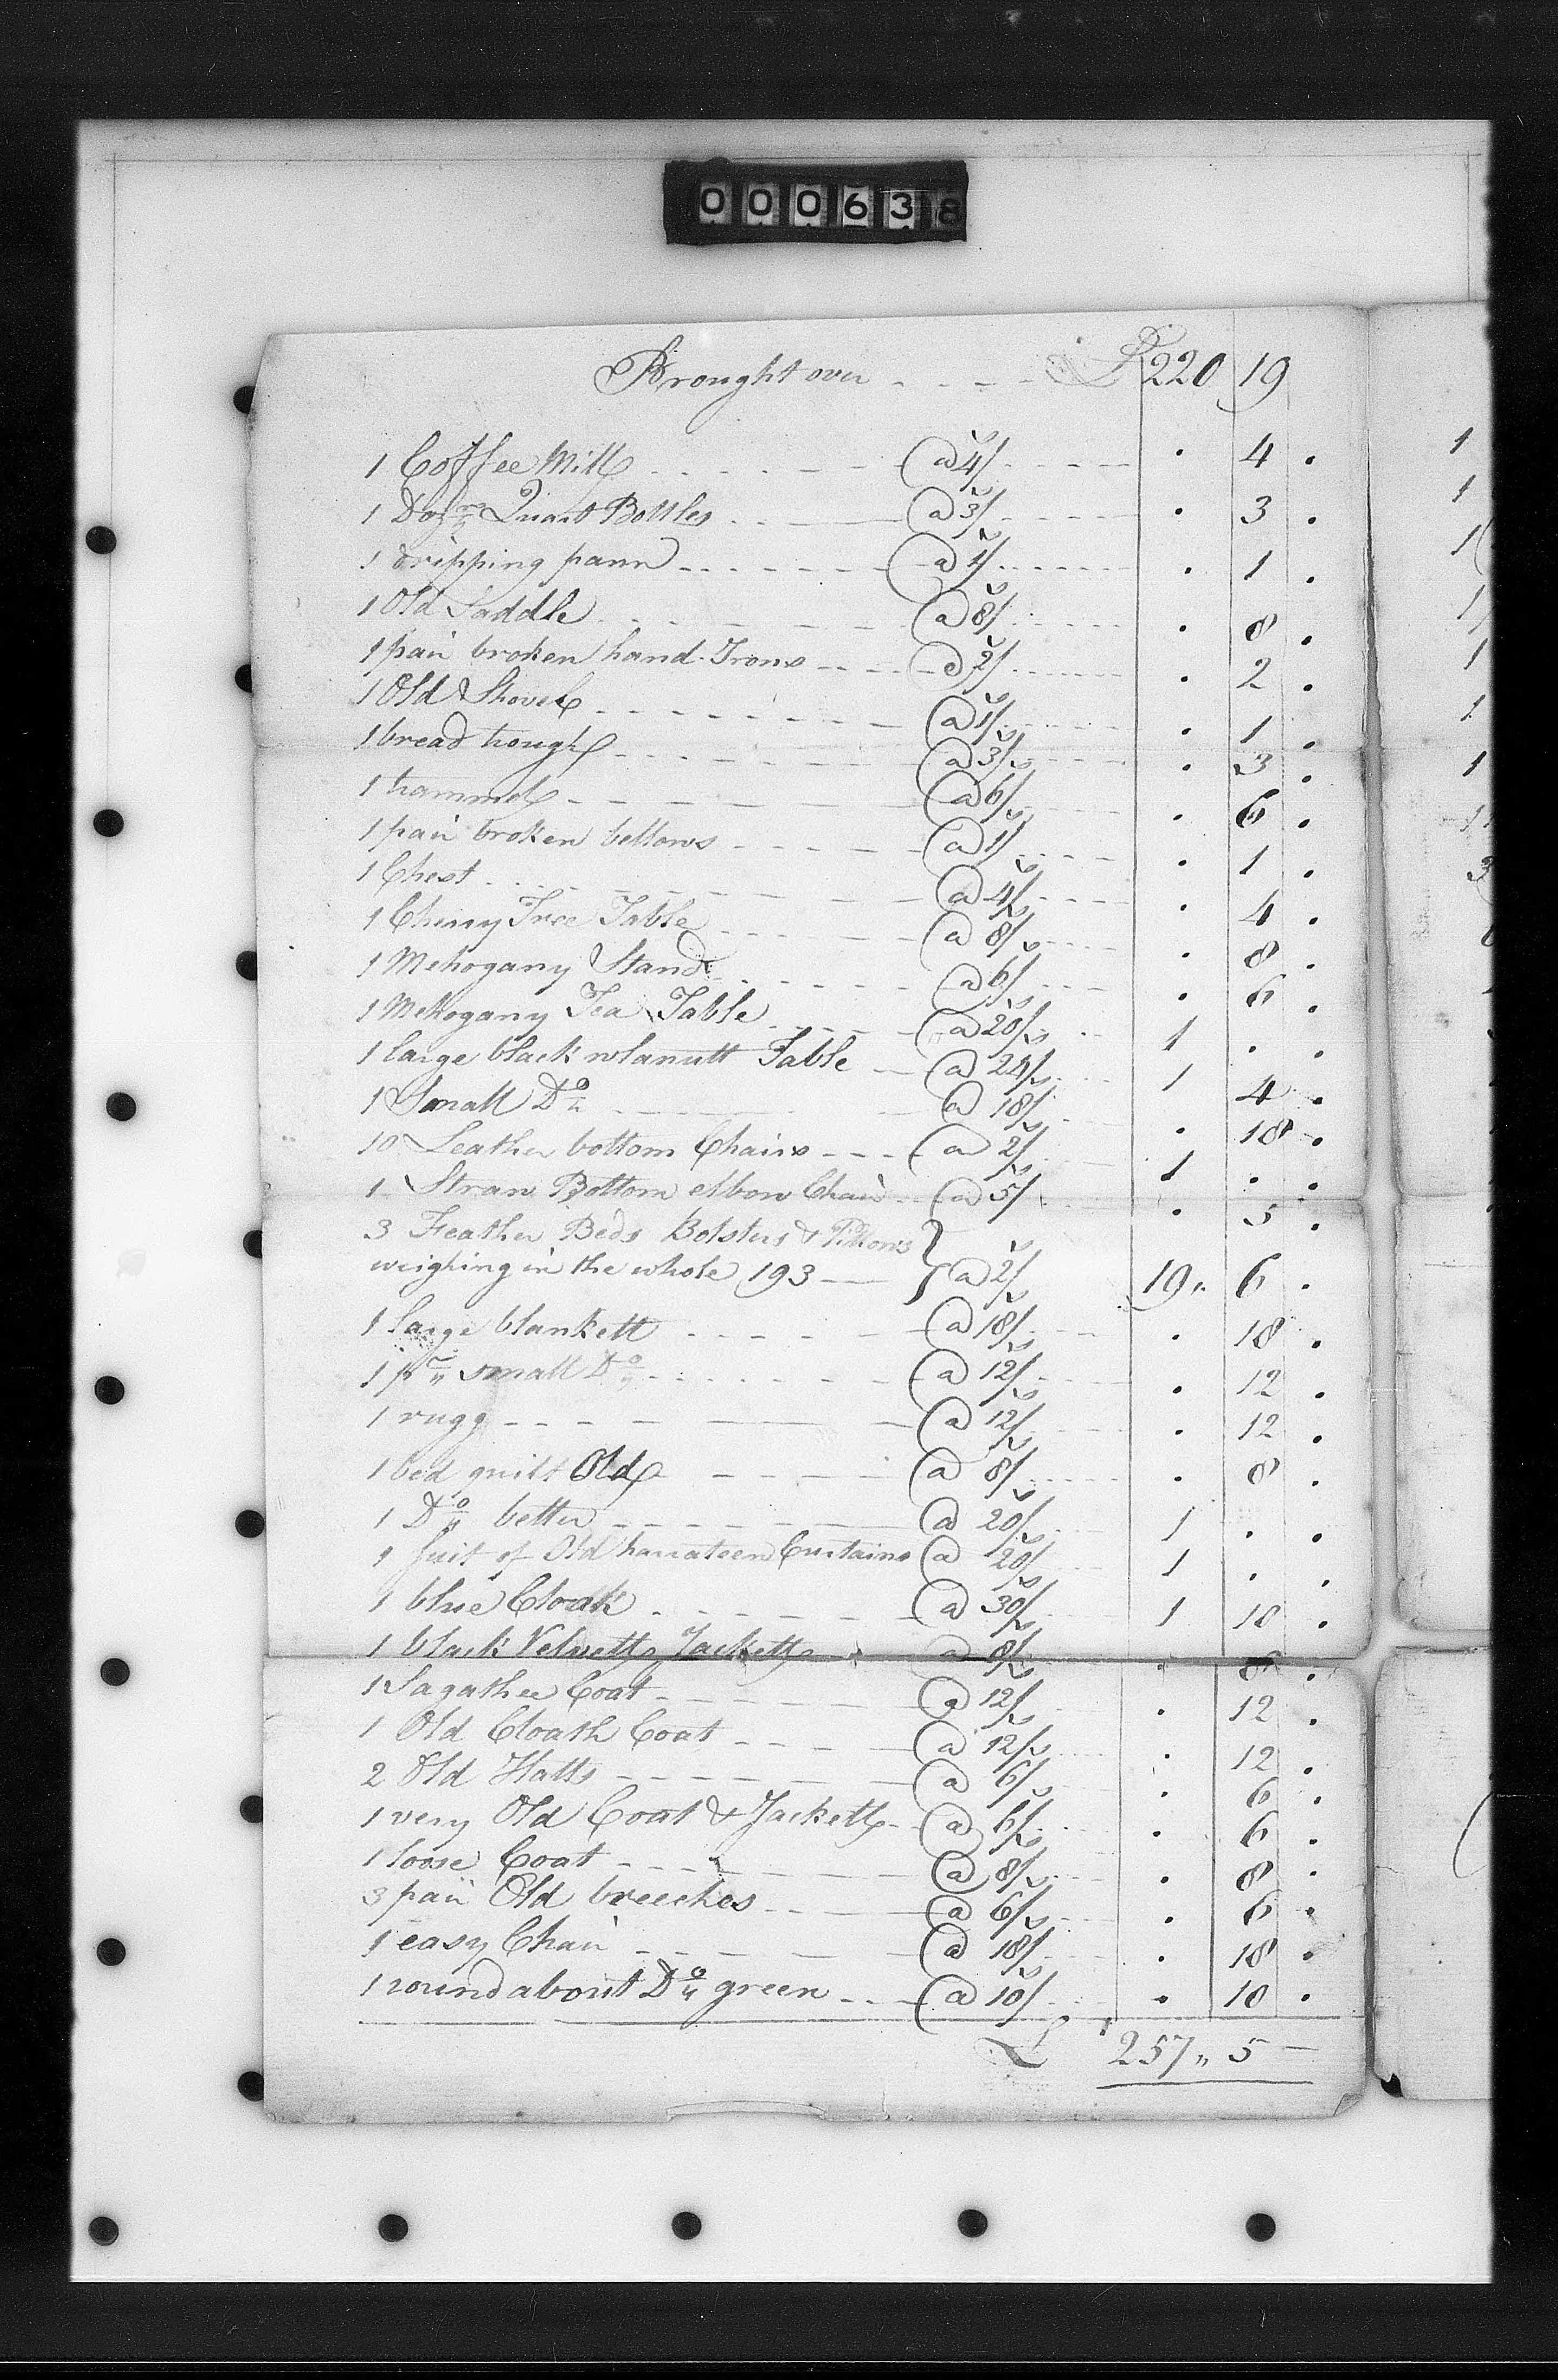 000638
Brought over - - - - £ 220 19
1 Coffee Mill - - - - - @ 4/ - - - . 4 .
1 Dozn Quart Bottles - - @ 3/ - - - . 3 .
1 dripping pann - - - - - @ 1/ - - - . 1 .
1 Old Saddle - - - - - @ 8/ - - - . 8 .
1 pair broken hand Irons - - - @ 2/ - - - . 2 .
1 Old Shovel - - - - - @ 1/ - - - . 1 .
1 bread trough - - - - - @ 3/ - - - . 3 .
1 trammel - - - - - @ 6/ - - - . 6 .
1 pair broken bellows - - - - @ 1/ - - - . 1 .
1 Chest - - - - - @ 4/ - - - . 4 .
1 Cherry Tree Table - - - - @ 8/ - - - . 8 .
1 Mehogany Stand - - - - @ 6/ - - - . 6 .
1 Mehogany Tea Table - - - @ 20/ - - 1 . .
1 large black wlanutt Table - @ 24/ - - 1 4 .
1 Small Do - - - @ 18/ - . 18 .
10 Leather bottom Chairs - - - @ 2/ - - 1 . .
1 Straw Bottom elbow Chair - - @ 5/ . 5 .
3 Feather Beds Bolsters & Pillows }
weighing in the whole 193 — } @ 2/ 19 " 6 .
1 large blankett - - - - @ 18/ - - . 18 .
1 pr small Do - - - - @ 12/ - - . 12 .
1 rugg - - - - @ 12/ - - . 12 .
1 bed quilt Old - - - - @ 8/ - - . 8 .
1 Do better - - - - @ 20/ 1 . .
1 suit of Old harrateen Curtains @ 20/ 1 . .
1 blue Cloak - - - - @ 30/ 1 10 .
1 black Velvett Jackett - - @ 8/ . 8 .
1 Sagathee Coat - - - - @ 12/ . 12 .
1 Old Cloath Coat - - - - @ 12/ . 12 .
2 Old Hatts - - - - @ 6/ . 6 .
1 very Old Coat & Jackett - - @ 6/ . 6 .
1 loose Coat - - - - @ 8/ . 8 .
3 pair Old breeches - - - @ 6/ . 6 .
1 easy Chair - - - - @ 18/ . 18 .
1 roundabout Do green - - - @ 10/ . 10 .
£ 257 " 5 —